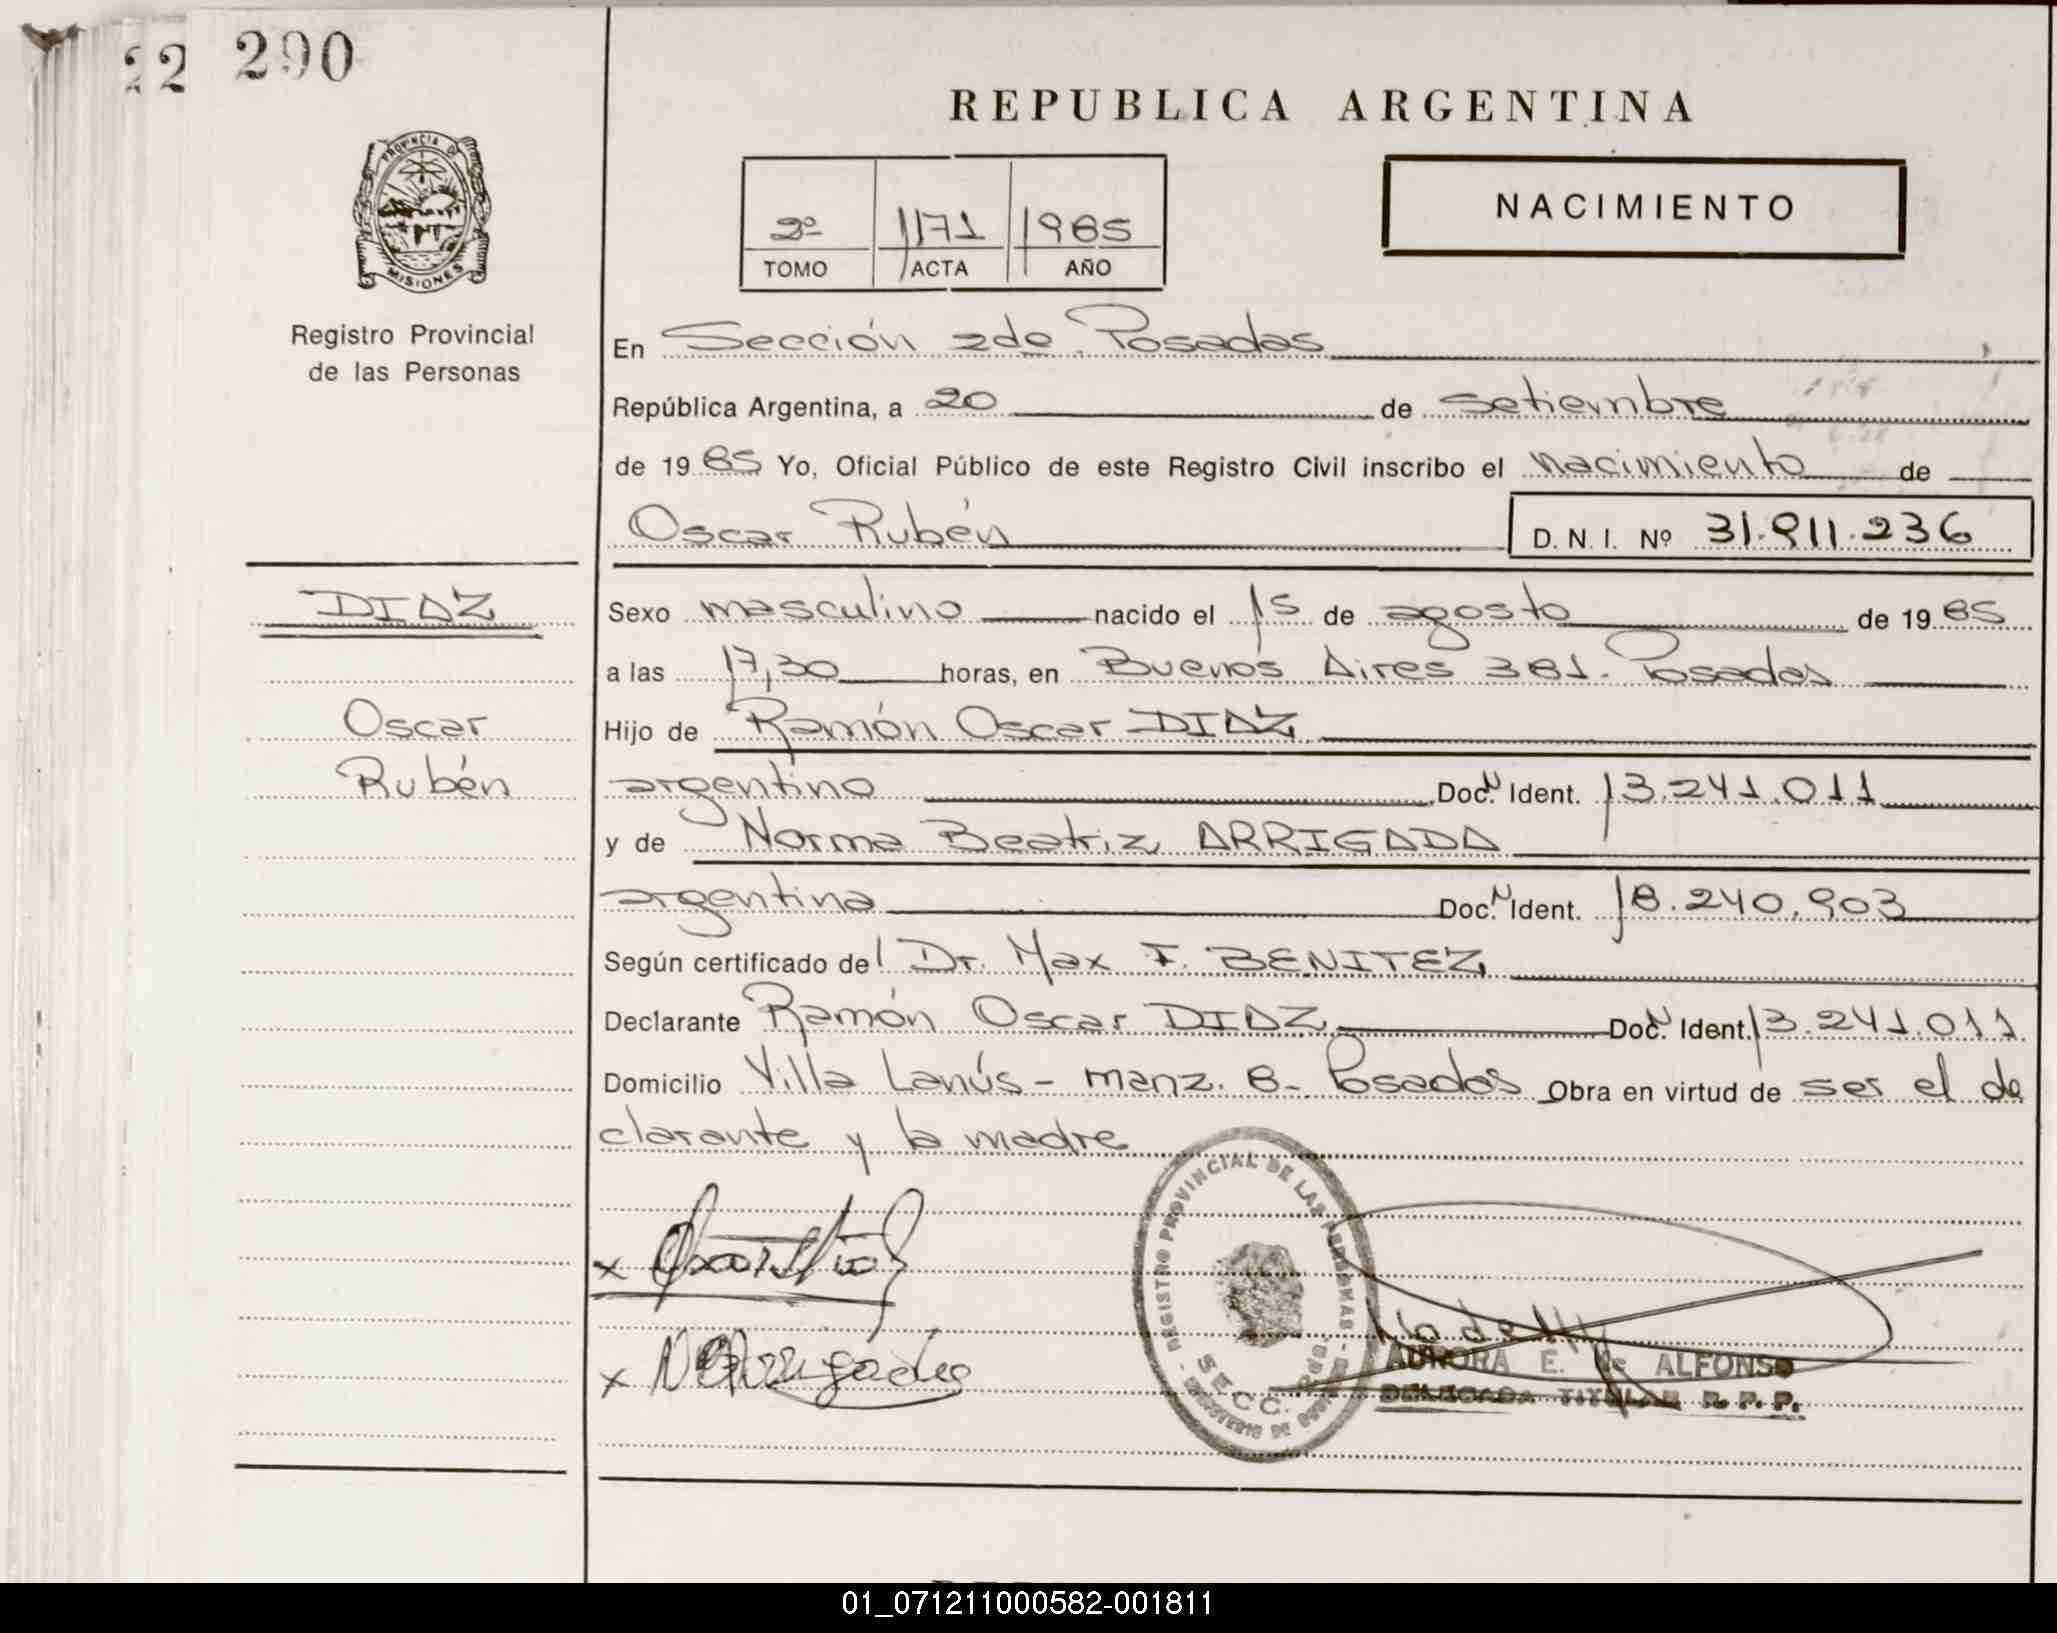 22 290
REPUBLICA ARGENTINA
PROVINCIA DE
MISIONES
2º 1171 1985
TOMO ACTA AÑO
NACIMIENTO
Registro Provincial
de las Personas
En Sección 2da. Posadas
República Argentina, a 20 de setiembre
de 1985 Yo, Oficial Público de este Registro Civil inscribo el nacimiento de
Oscar Rubén D. N. I. Nº 31.911.236
DIAZ
Sexo masculino nacido el 15 de agosto de 1985
a las 17,30 horas, en Buenos Aires 381. Posadas
Oscar
Hijo de Ramón Oscar DIAZ
Rubén
argentino Doc. N Ident. 13.241.011
y de Norma Beatriz ARRIGADA
argentina Doc. N Ident. 18.240.903
Según certificado del Dr. Max F. BENITEZ
Declarante Ramón Oscar DIAZ Doc. N Ident. 13.241.011
Domicilio Villa Lanús - manz. 8 - Posadas Obra en virtud de ser el de
clarante y la madre
REGISTRO PROVINCIAL DE LAS PERSONAS
SECC.
MINISTERIO DE
x
x
AURORA E. de ALFONSO
DELEGADA TITULAR R. P. P.
01_071211000582-001811